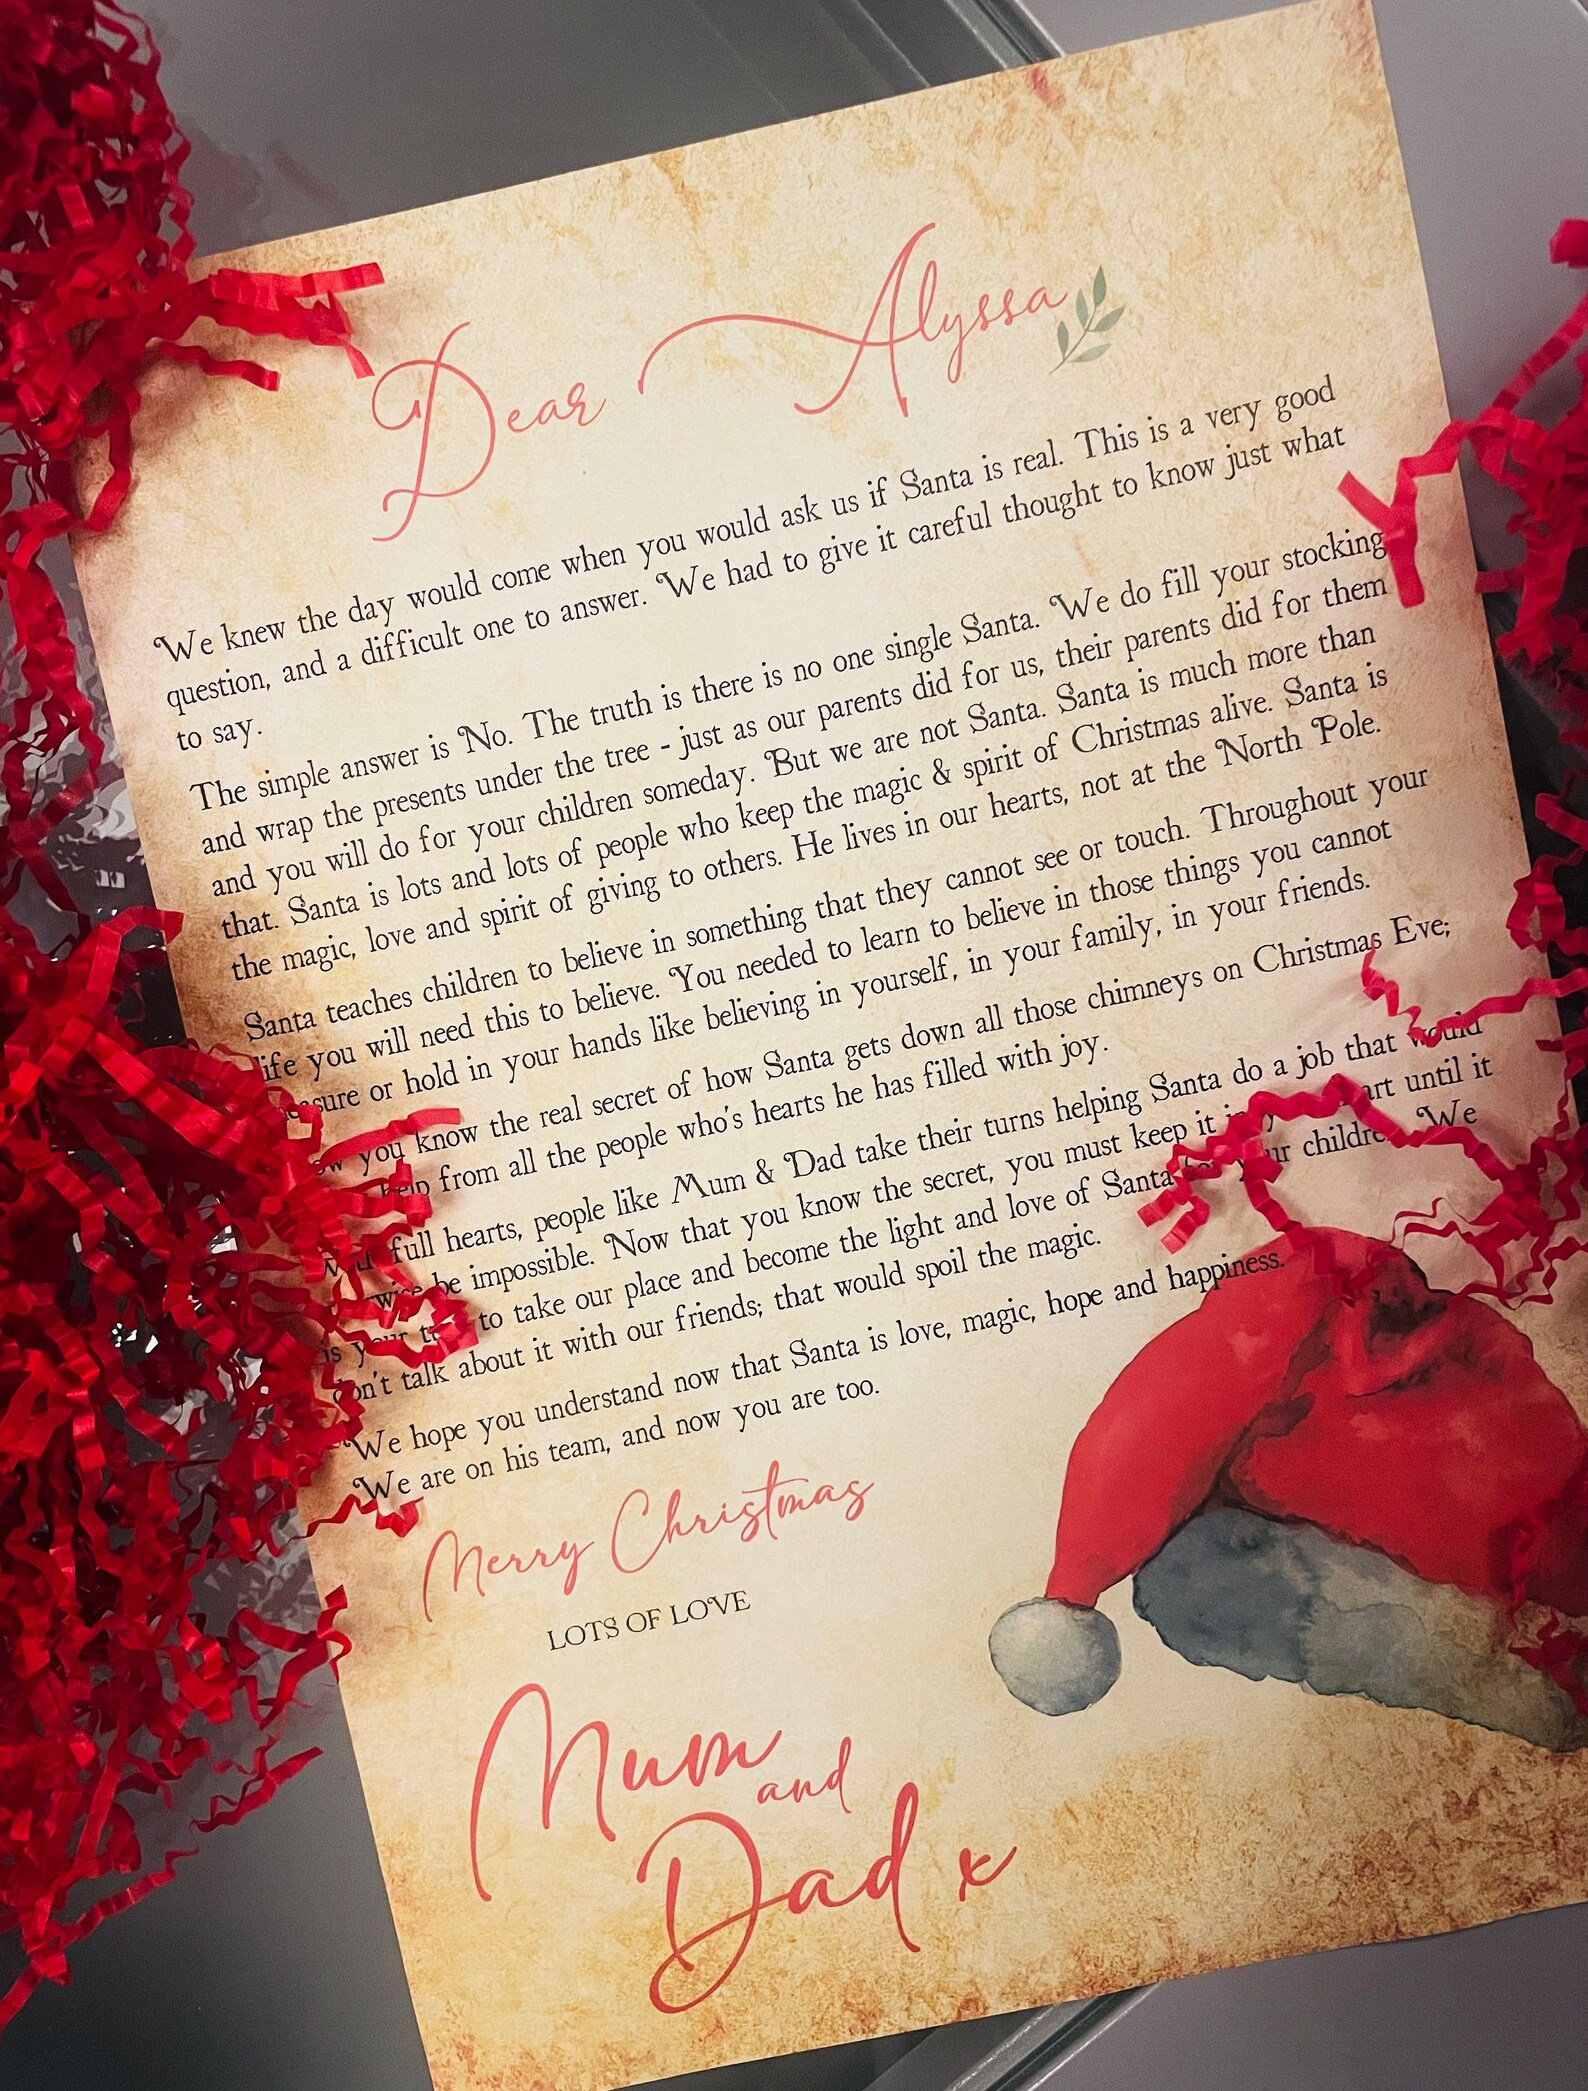 Dear Alyssa
We knew the day would come when you would ask us if Santa is real. This is a very good
question, and a difficult one to answer. We had to give it careful thought to know just what
to say.
The simple answer is No. The truth is there is no one single Santa. We do fill your stocking
and wrap the presents under the tree - just as our parents did for us, their parents did for them
and you will do for your children someday. But we are not Santa. Santa is much more than
that. Santa is lots and lots of people who keep the magic & spirit of Christmas alive. Santa is
the magic, love and spirit of giving to others. He lives in our hearts, not at the North Pole.
Santa teaches children to believe in something that they cannot see or touch. Throughout your
life you will need this to believe. You needed to learn to believe in those things you cannot
or hold in your hands like believing in yourself, in your family, in your friends.
you know the real secret of how Santa gets down all those chimneys on Christmas Eve;
help from all the people who's hearts he has filled with joy.
full hearts, people like Mum & Dad take their turns helping Santa do a job that would
be impossible. Now that you know the secret, you must keep it in until it
is to take our place and become the light and love of Santa children. We
don't talk about it with our friends; that would spoil the magic.
We hope you understand now that Santa is love, magic, hope and happiness.
We are on his team, and now you are too.
Merry Christmas
LOTS OF LOVE
Mum
and
Dad x